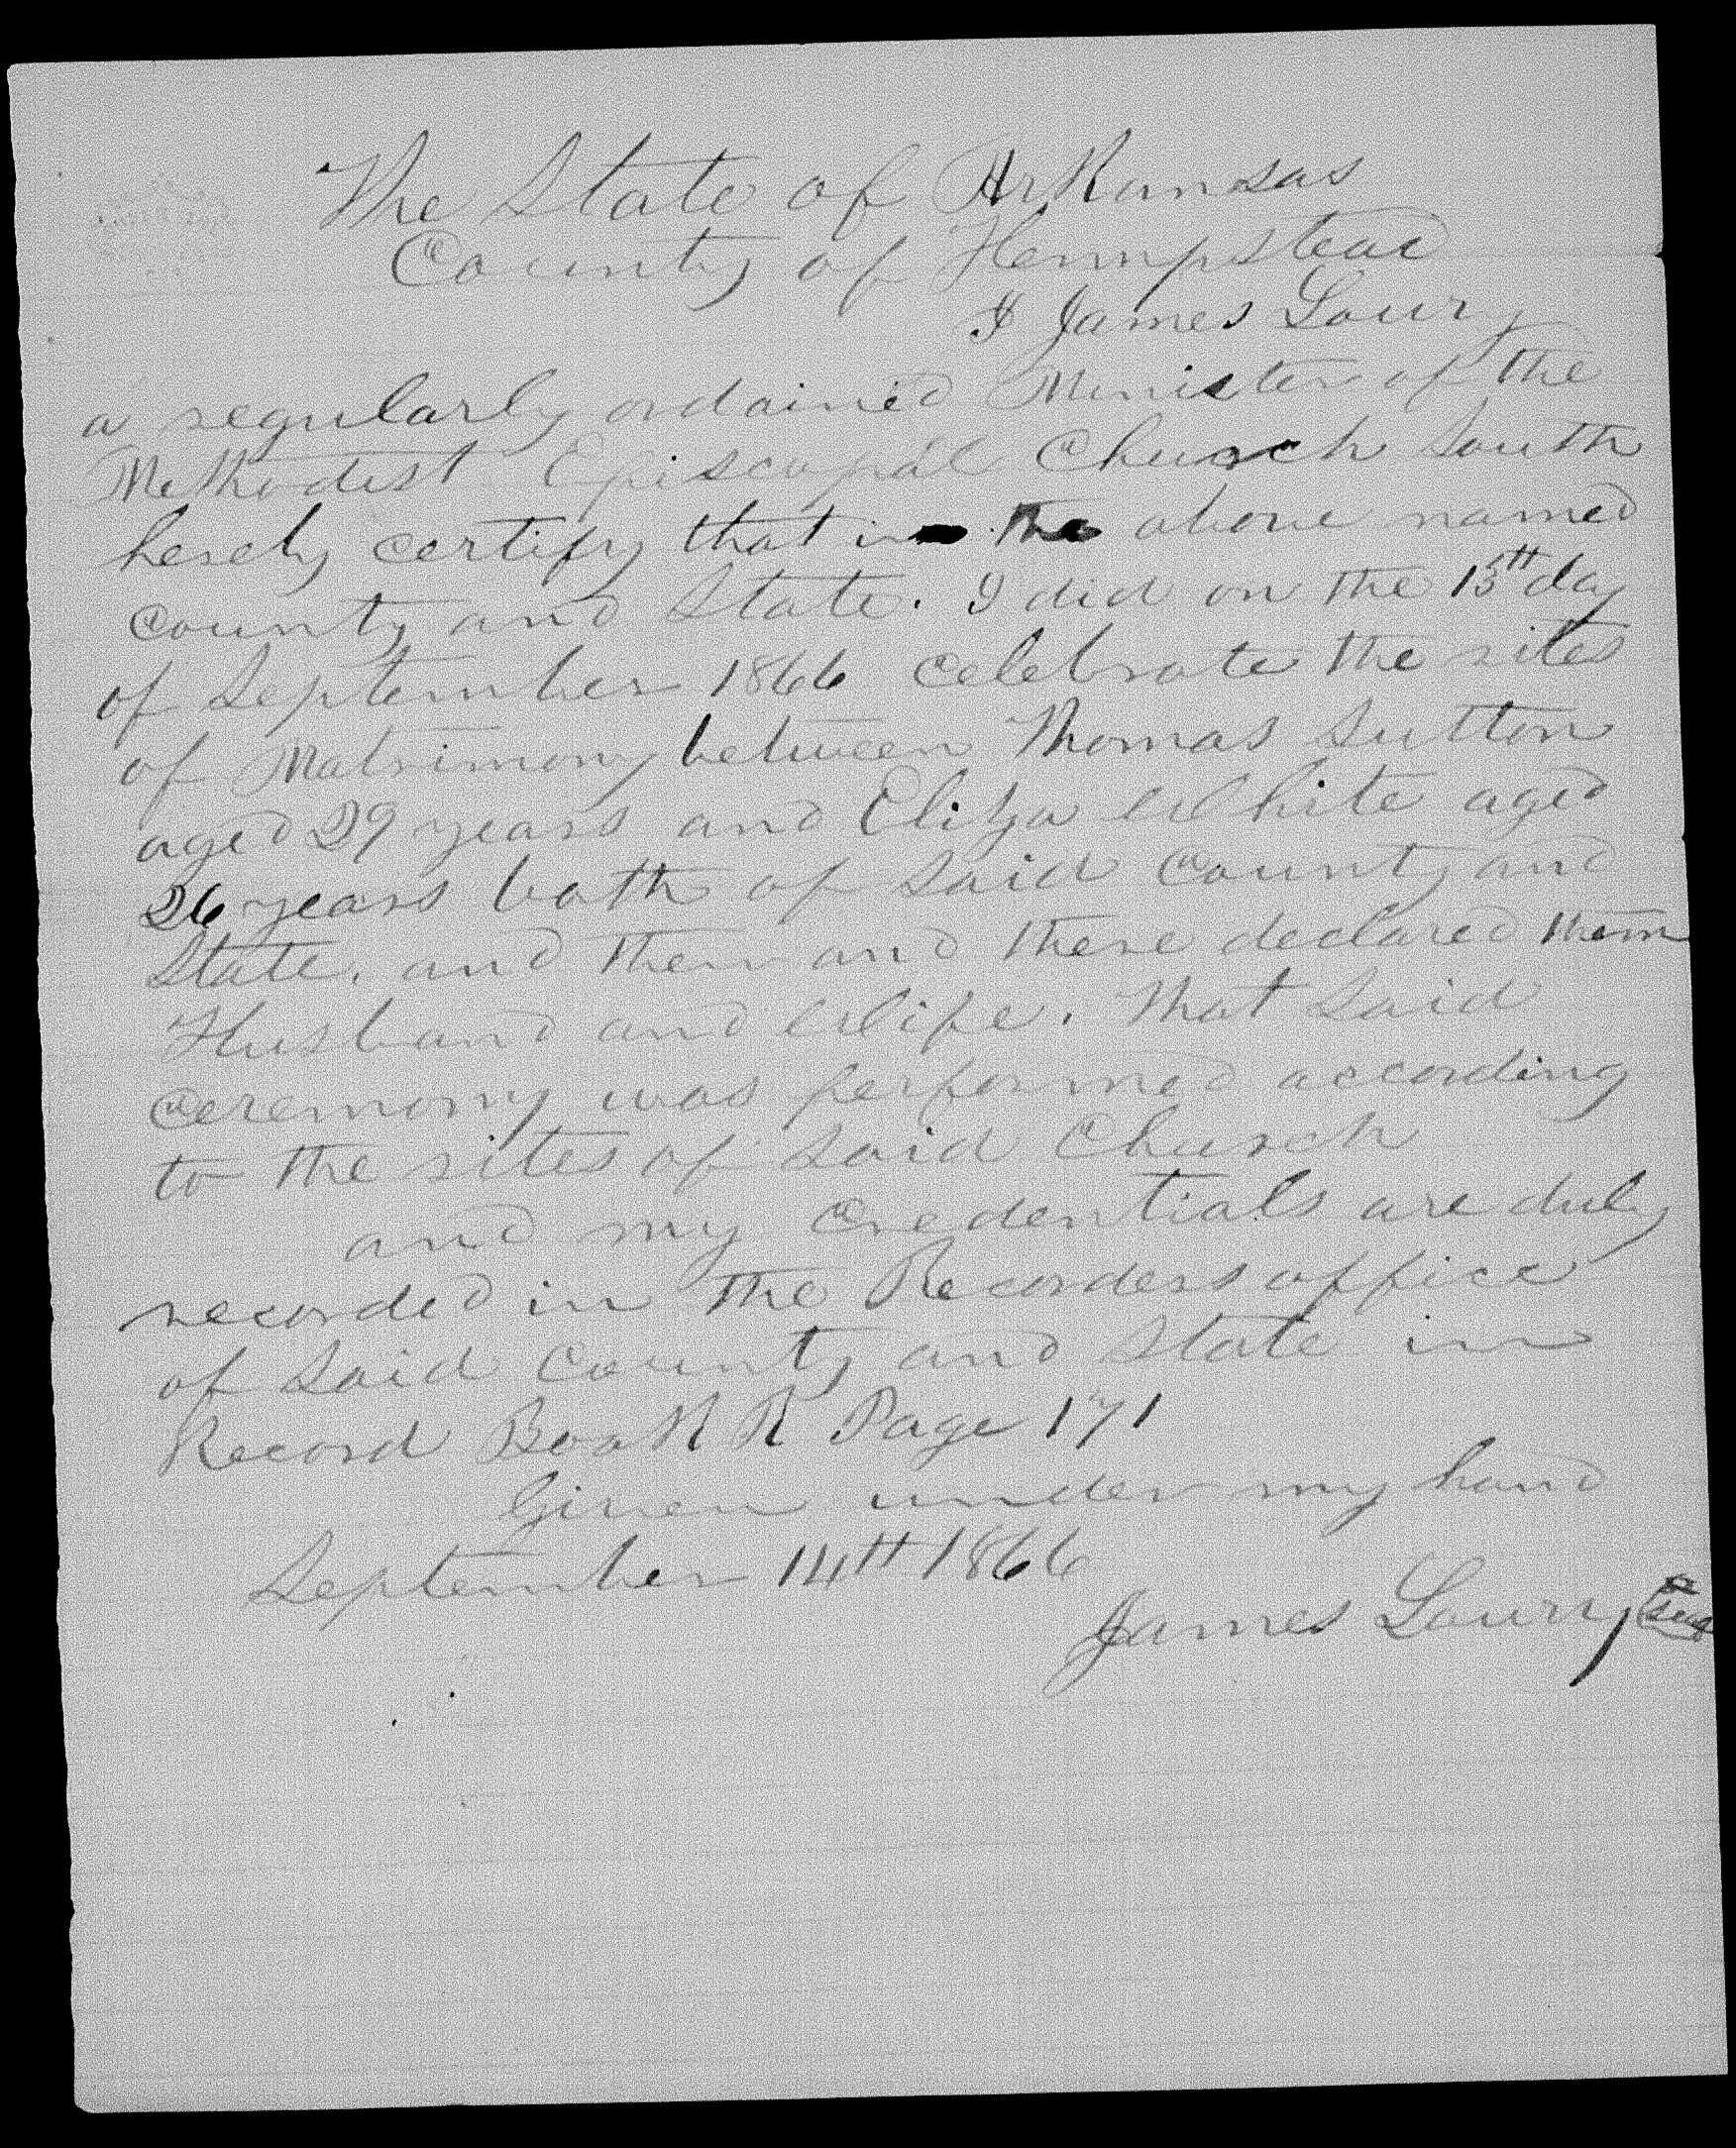 The State of Arkansas
County of Hempstead
I James Lowry
a regularly ordained Minister of the
Methodist Episcopal Church South
hereby certify that in the above named
county and State. I did on the 13th day
of September 1866 celebrate the rites
of Matrimony between Thomas Sutton
aged 29 years and Eliza White aged
26 years both of said County and
State, and then and there declared them
Husband and Wife. That said
ceremony was performed according
to the rites of said Church
and my credentials are duly
recorded in the Recorders office
of said County and State in
Record Book R Page 171
Given under my hand
September 14th 1866
James Lowry Seal